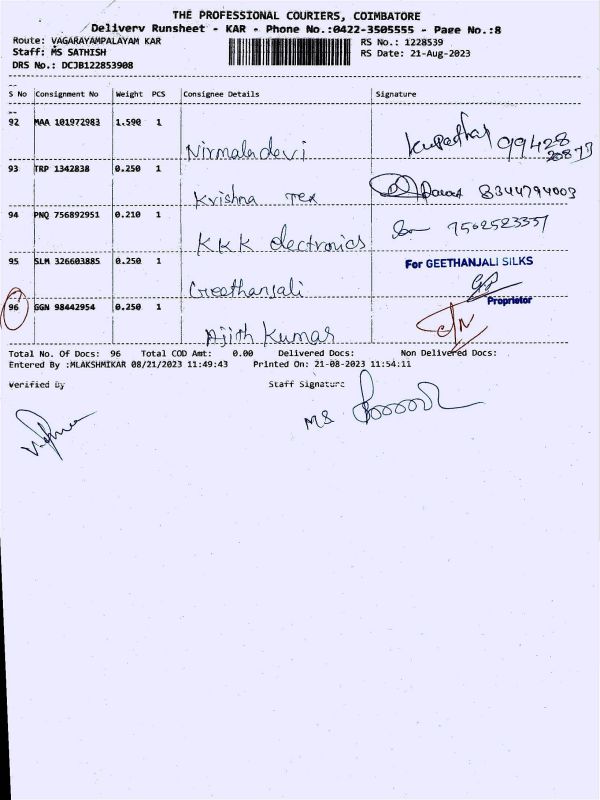 THE PROFESSIONAL COURIERS, COIMBATORE
Delivery Runsheet - KAR - Phone No.:0422-3505555 - Page No.:8
Route: VAGARAYAMPALAYAM KAR
RS No.: 1228539
Staff: MS SATHISH
RS Date: 21-Aug-2023
DRS No.: DCJB122853908
S No Consignment No Weight PCS Consignee Details Signature
92 MAA 101972983 1.590 1 Nirmaladevi 99428
20873
93 TRP 1342838 0.250 1 Krishna Tex 8344794003
94 PNQ 756892951 0.210 1 KKK electronics 7502523337
95 SLM 326603885 0.250 1 Geethanjali For GEETHANJALI SILKS
Proprietor
96 GGN 98442954 0.250 1 Ajith Kumar
Total No. Of Docs: 96 Total COD Amt: 0.00 Delivered Docs: Non Delivered Docs:
Entered By :MLAKSHMIKAR 08/21/2023 11:49:43 Printed On: 21-08-2023 11:54:11
Verified By Staff Signature
MS